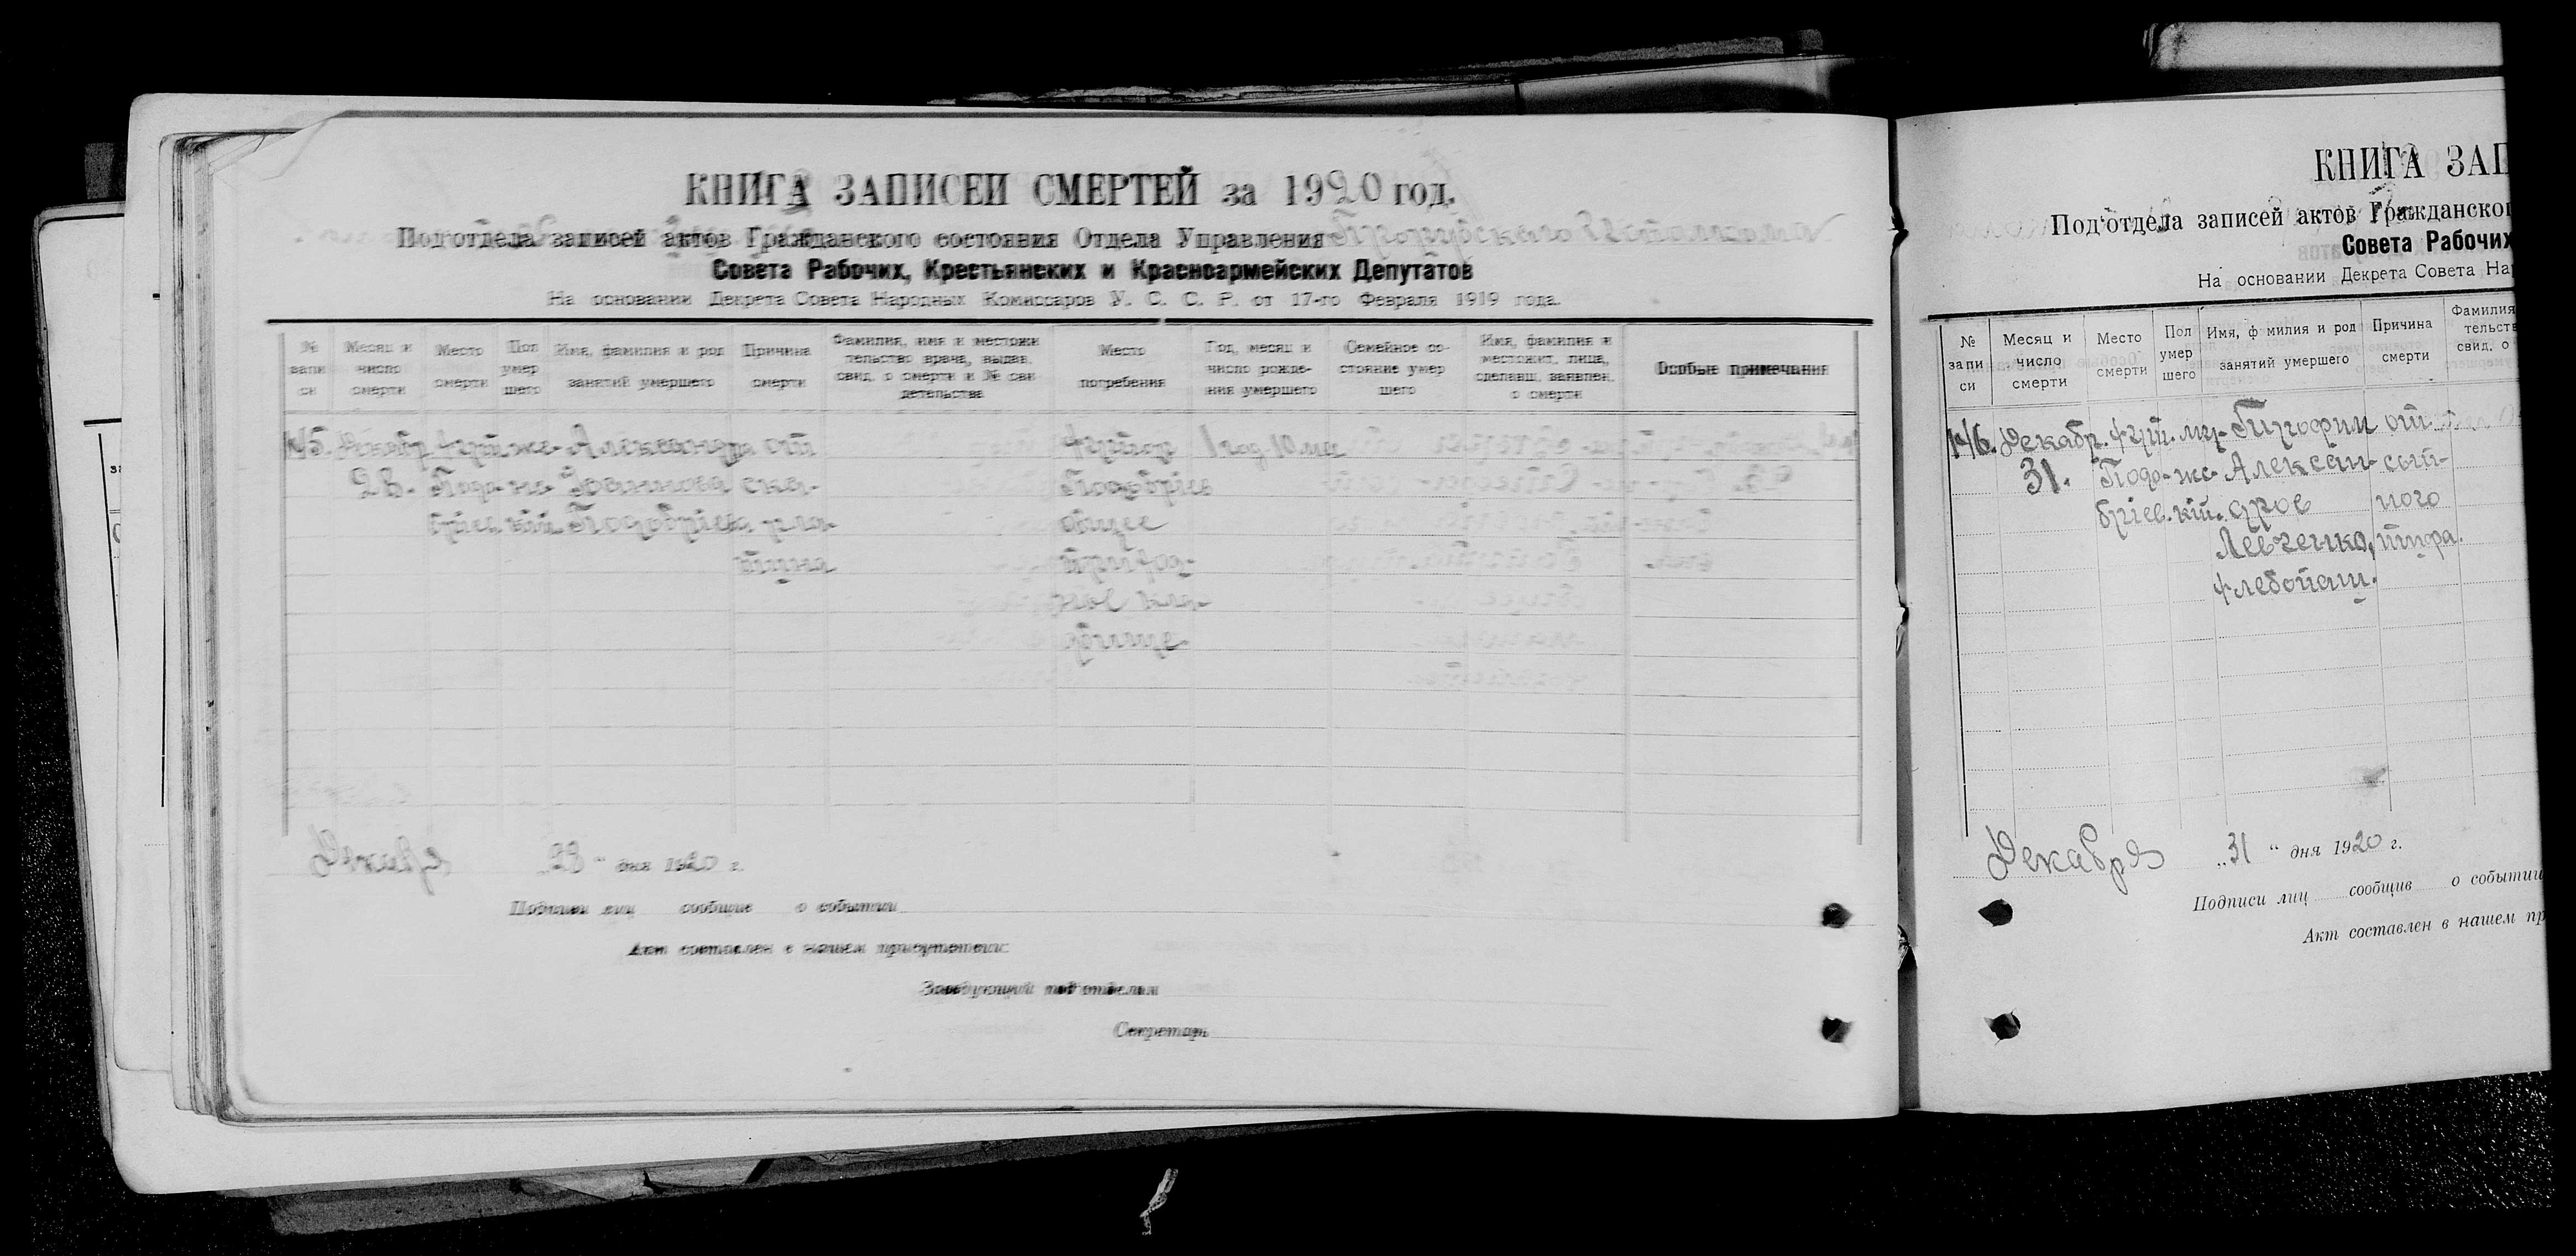 КНИГА ЗАПИСЕЙ СМЕРТЕЙ за 1920 год.
Под'отдела записей актов Гражданского состояния Отдела Управления
Совета Рабочих, Крестьянских и Красноармейских Депутатов
На основании Декрета Совета Народных Комиссаров У. С. С. Р. от 17-го Февраля 1919 года.
№ запи си
Месяц и число смерти
Место смерти
Пол умер шего
Имя, фамилия и род занятий умершего
Причина смерти
Фамилия, имя и местожи тельство врача, выдав. свид. о смерти и № сви детельства
Место погребения
Год, месяц и число рожде- ния умершего
Семейное со- стояние умер шего
Имя, фамилия и местожит. лица, сделавш. заявлен. о смерти
Особые примечания
Декабр. хут. же- Александра от хутор 1 год 10 мц
28. Подо- но- ска-
кій рла- общее
тина
дбище
28 " дня 1920 г.
Подписи лиц сообщив о событии
Акт составлен в нашем присутствии:
Заведующий под'отделом
Секретарь
КНИГА ЗАП
Под'отдела записей актов Гражданског
Совета Рабочих
На основании Декрета Совета На
№ запи си
Месяц и число смерти
Место смерти
Пол умер шего
Имя, ф милия и род занятий умершего
Причина смерти
Фамилия тельств свид. о
146. Декабр. хут. му- от
31. Подо- же- Алексан- сып-
бріев. кій. дров ного
Левченко, тифа.
хлебопаш.
Декабря „31 " дня 1920 г.
Подписи лиц сообщив о событии
Акт составлен в нашем пр